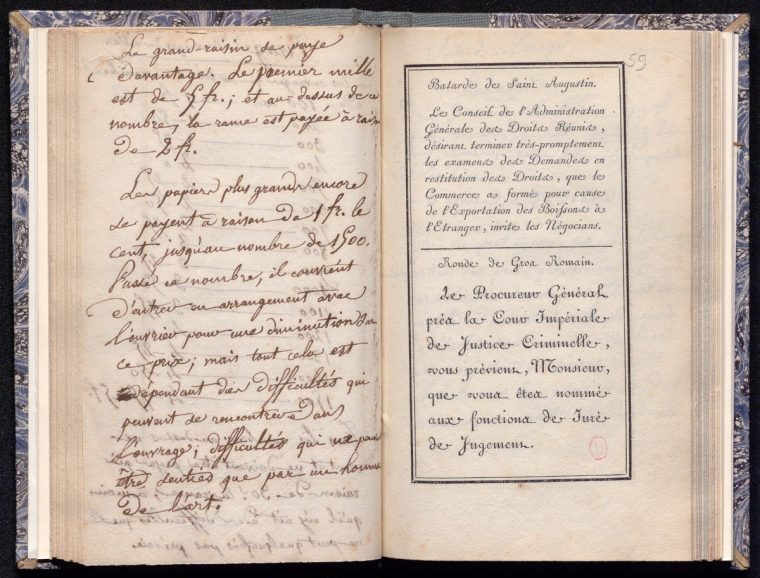 Le grand-raisin se paye
davantage. Le premier mille
est de 5 fr.; et au dessus de ce
nombre, la rame est payée à rais
de 2 fr.
Les papiers plus grands encore
se payent à raison de 1 fr. le
cent, jusqu'au nombre de 1500.
Passé ce nombre, il convient
d'entrer en arrangement avec
l'ouvrier pour une diminution sur
ce prix; mais tout cela est
indépendant des difficultés qui
peuvent se rencontrer dans
l'ouvrage; difficultés qui ne
être senties que par un homme
de l'art.
59
Batarde de Saint Augustin.
Le Conseil de l'Administration
Générale des Droits Réunis,
désirant terminer très-promptement
les examens des Demandes en
restitution des Droits, que le
Commerce a formé pour cause
de l'Exportation des Boissons à
l'Etranger, invite les Négocians.
Ronde de Gros Romain.
Le Procureur Général
près la Cour Impériale
de Justice Criminelle,
vous prévient, Monsieur,
que vous êtes nommé
aux fonctions de Juré
de Jugement.